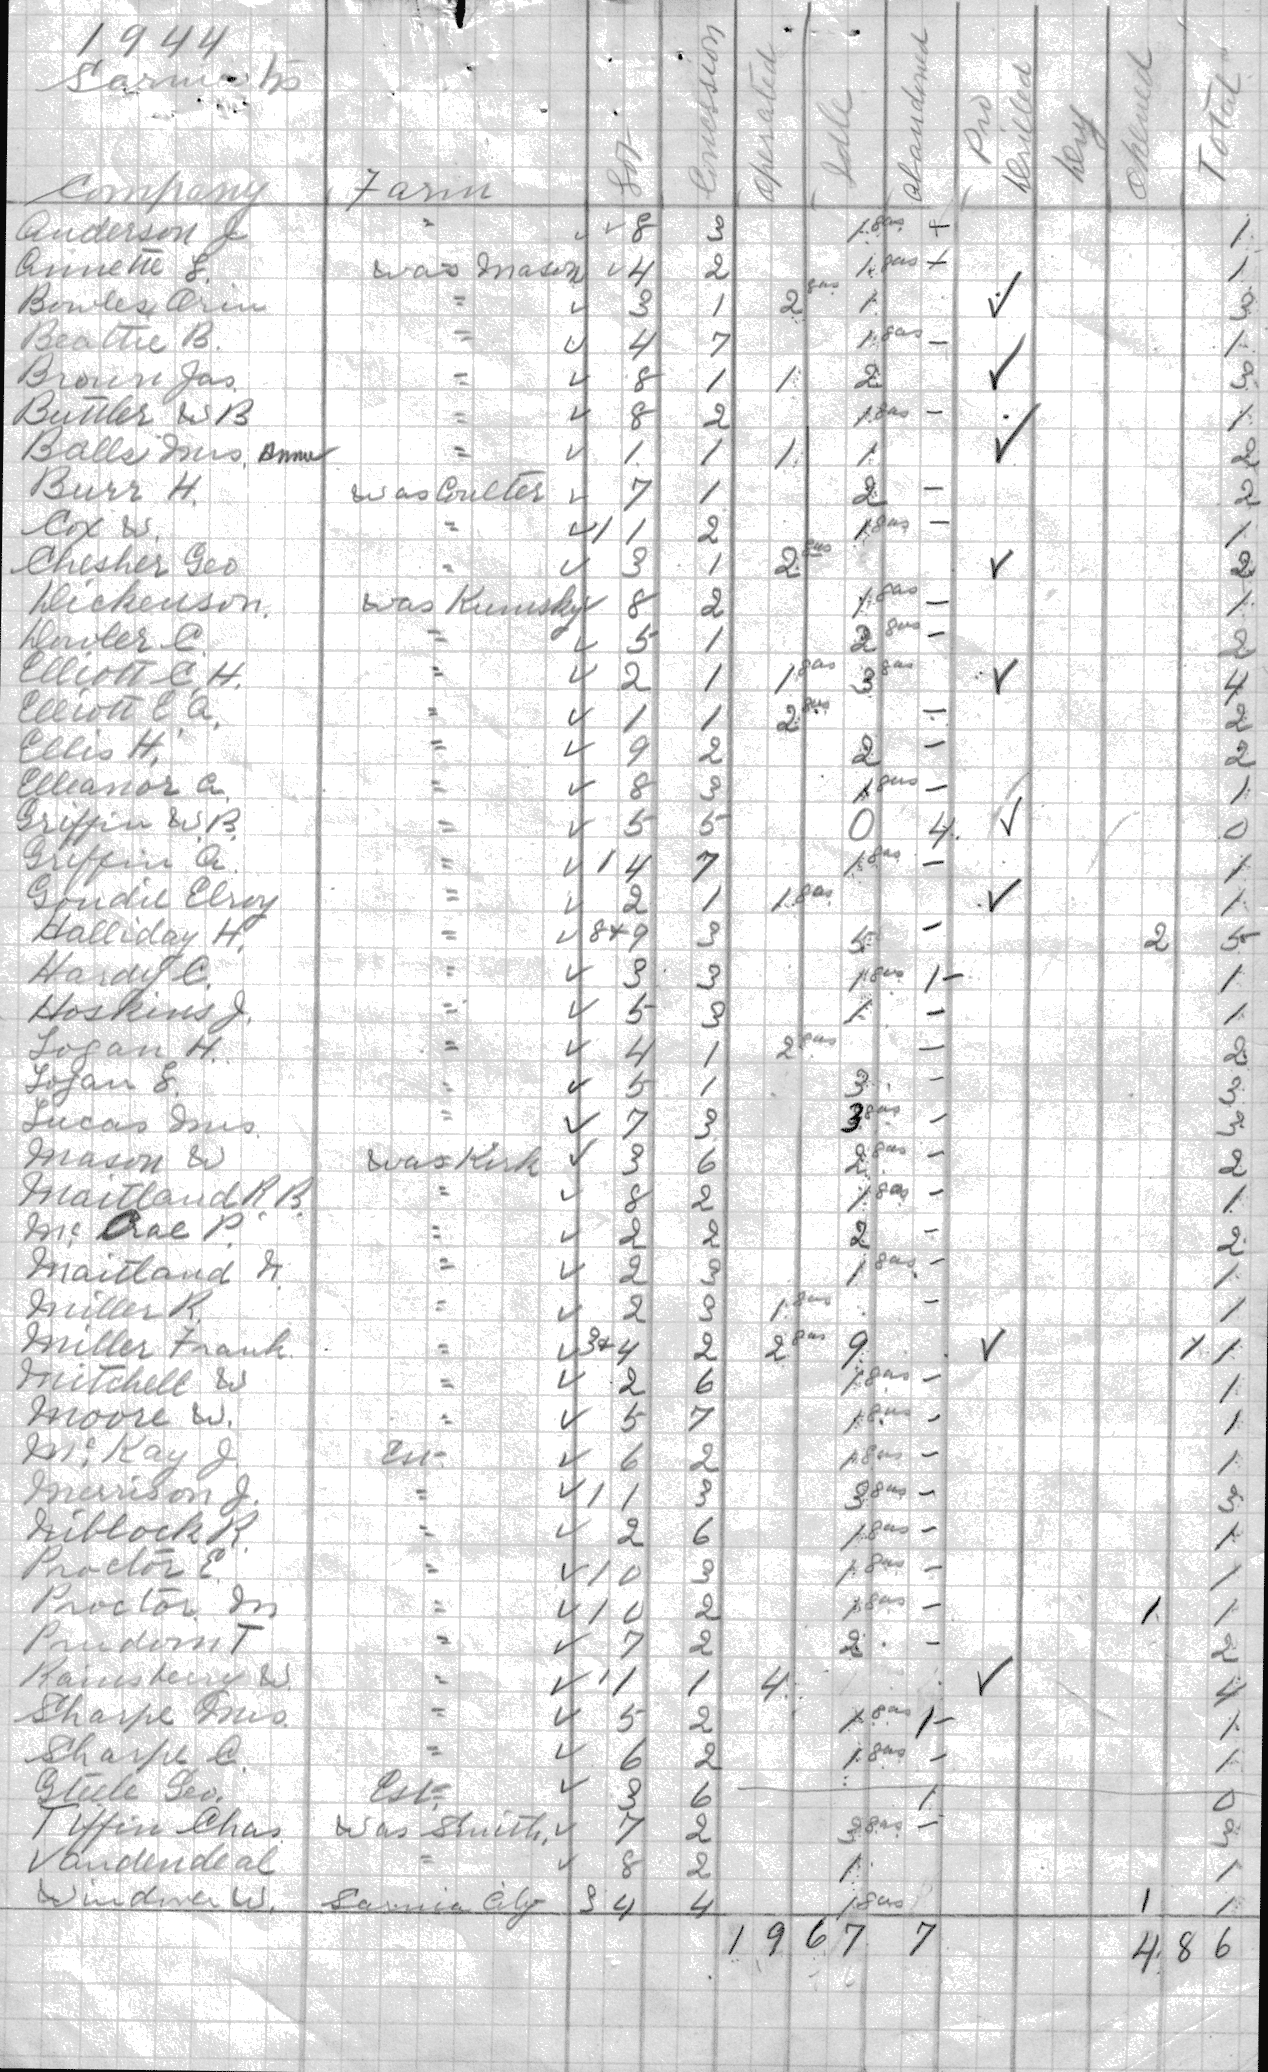 1944
Sarnia
Company Farm Lot Concession Operated Idle Abandoned Pro Drilled Dry Opened Total
Anderson J " ✓ ✓ 8 3 1 gas + 1
Annette S. was Mason ✓ 4 2 1 gas + 1
Bowles Orin " ✓ 3 1 2 gas 1 ✓ 3
Beattie B. " ✓ 4 7 1 gas - 1
Brown Jas. " ✓ 8 1 1 2 ✓ 3
Buttler W B " ✓ 8 2 1 gas - 1
Balls Mrs. Annie " ✓ 1 1 1 1 ✓ 2
Burr H. was Coulter ✓ 7 1 2 - 2
Cox W. " ✓ 11 2 1 gas - 1
Chesher Geo " ✓ 3 1 2 gas ✓ 2
Dickenson. was Kumsky ✓ 8 2 1 gas - 1
Dowler C. " ✓ 5 1 2 gas - 2
Elliott C. H. " ✓ 2 1 1 gas 3 gas ✓ 4
Elliott C. A. " ✓ 1 1 2 gas - 2
Ellis H. " ✓ 9 2 2 - 2
Elleanor A. " ✓ 8 3 1 gas - 1
Griffin W. B. " ✓ 5 5 0 4 ✓ 0
Griffin A. " ✓ 14 7 1 gas - 1
Goudie Elroy " ✓ 2 1 1 gas ✓ 1
Halliday H. " ✓ 8+9 3 5 - 2 5
Hardy C. " ✓ 3 3 1 gas 1 - 1
Hoskins J. " ✓ 5 3 1 - 1
Logan H. " ✓ 4 1 2 gas - 2
Logan S. " ✓ 5 1 3 - 3
Lucas Mrs. " ✓ 7 3 3 gas - 3
Mason W was Kirk ✓ 3 6 2 gas - 2
Maitland R. B. " ✓ 8 2 1 gas - 1
Mc Crae P. " ✓ 2 2 2 - 2
Maitland N. " ✓ 2 3 1 gas - 1
Miller R. " ✓ 2 3 1 gas - 1
Miller Frank " ✓ 3+4 2 2 gas 9 ✓ 11
Mitchell W " ✓ 2 6 1 gas - 1
Moore W. " ✓ 5 7 1 gas - 1
Mc Kay J Est ✓ 6 2 1 gas - 1
Merrison J. " ✓ 11 3 3 gas - 3
Niblock R. " ✓ 2 6 1 gas - 1
Proctor E. " ✓ 10 3 1 gas - 1
Proctor M " ✓ 10 2 1 gas - 1 1
Prudom T " ✓ 7 2 2 - 2
Rainsberry W. " ✓ 11 1 4 ✓ 4
Sharpe Mrs. " ✓ 5 2 1 gas 1 - 1
Sharpe C. " ✓ 6 2 1 gas - 1
Steele Geo. Est. ✓ 3 6 1 0
Tiffin Chas. was Smith ✓ 7 2 3 gas - 3
Vandendeal " ✓ 8 2 1 1
W. Sarnia City 34 4 1 gas 1 1
19 67 7 4 86